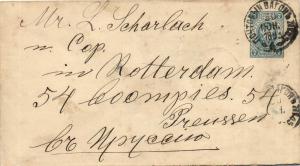 Mr. L. Scharlach
n. Cop.
in Rotterdam.
54 boompies. 54
Preussen
въ Пруссію